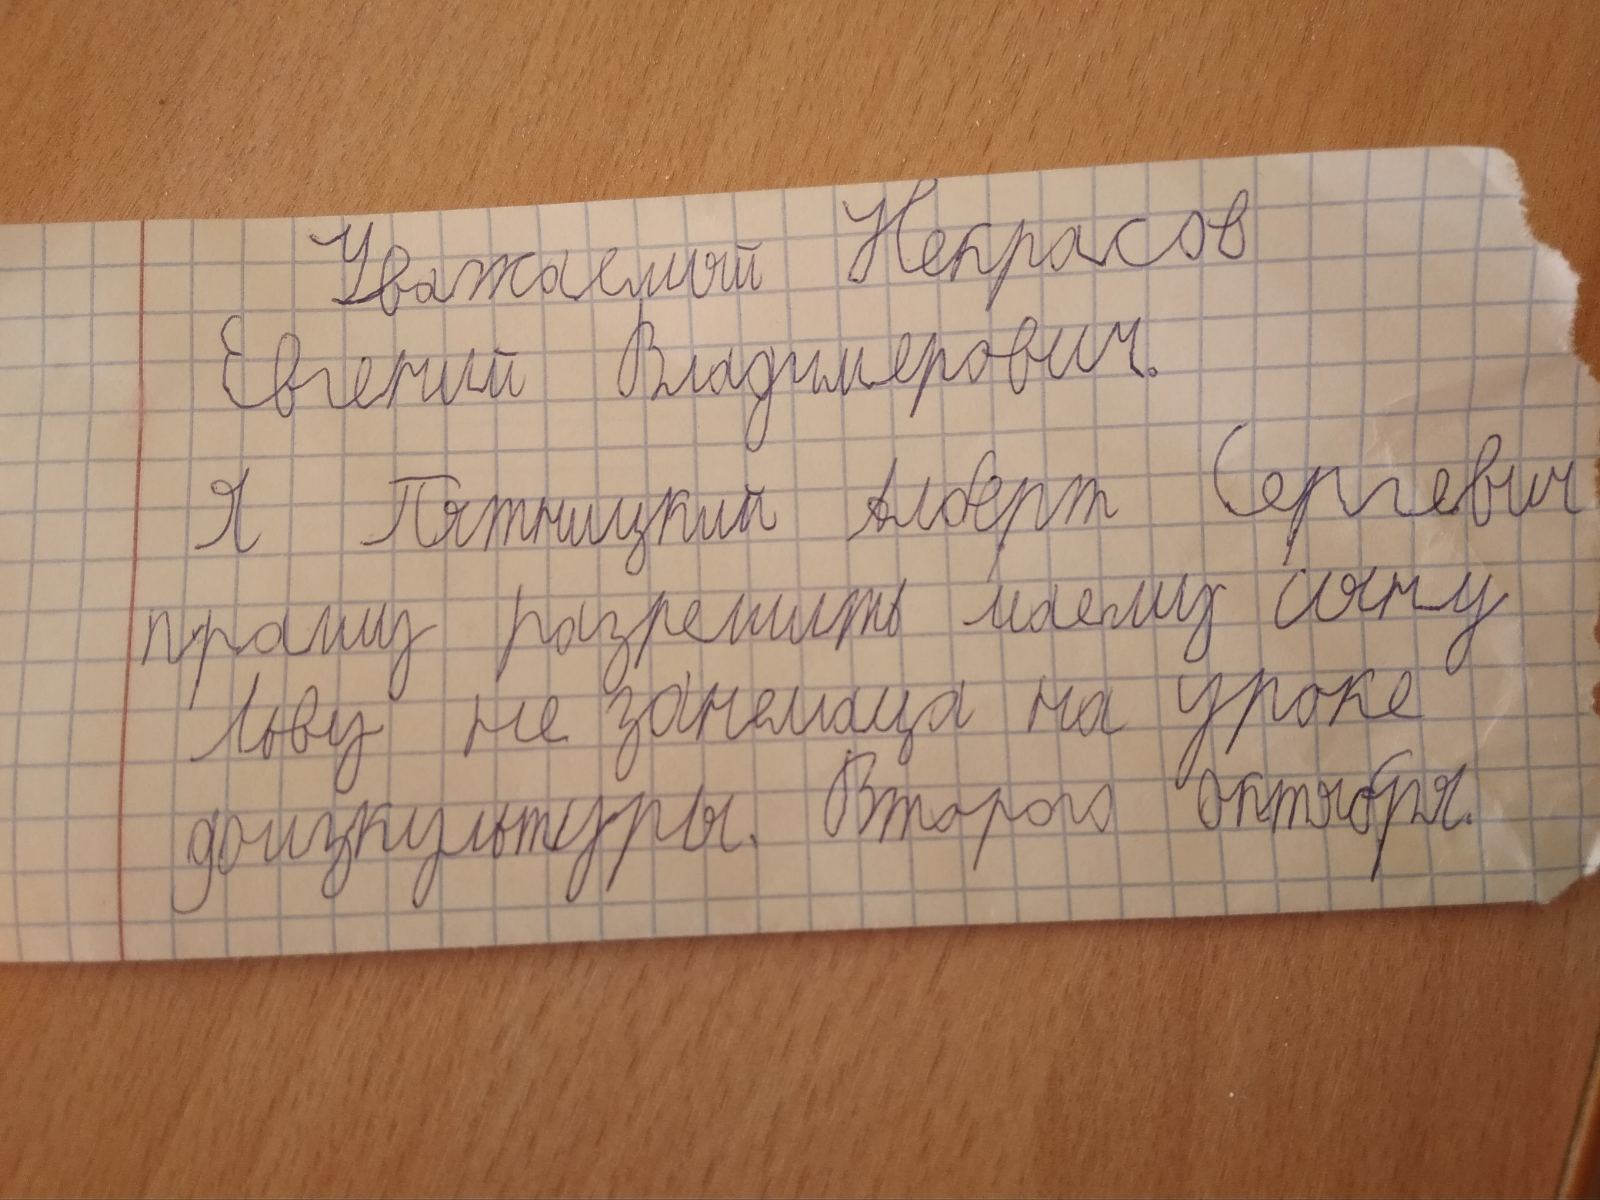 Уважаемый Некрасов
Евгений Владимерович.
Я Пятницкий Алберт Сергевич
прашу разрешить маему сыну
Льву не занемаца на уроке
физкультуры. Второго октября.